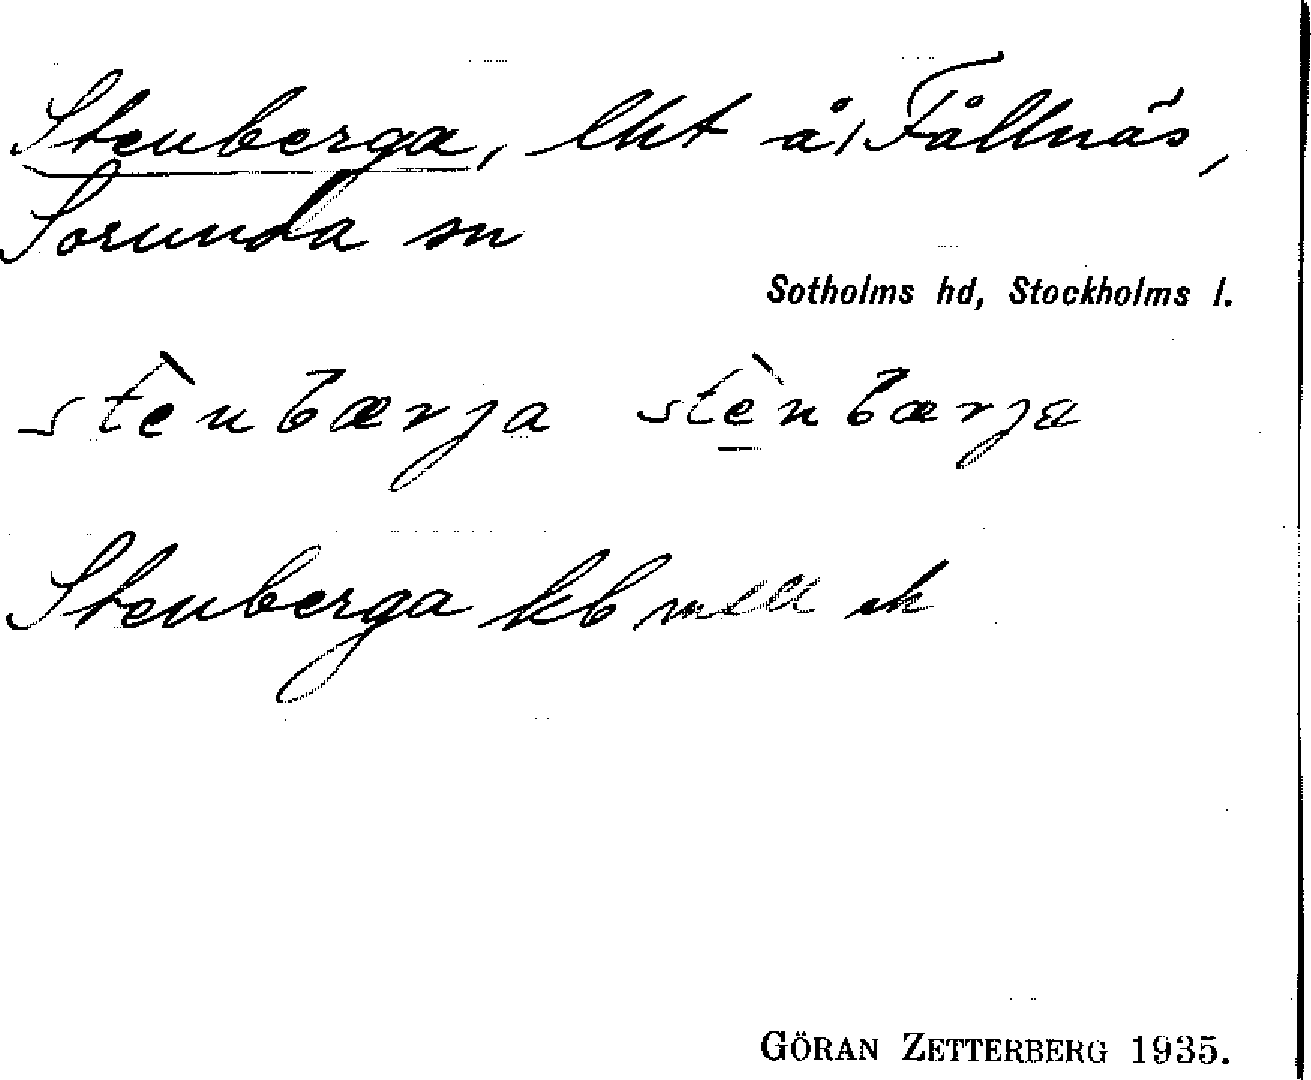 Stenberga, lht å, Fållnäs,
Sorunda sn
Sotholms hd, Stockholms l.
stènbærja stènbærja
Stenberga kb ek
GÖRAN ZETTERBERG 1935.